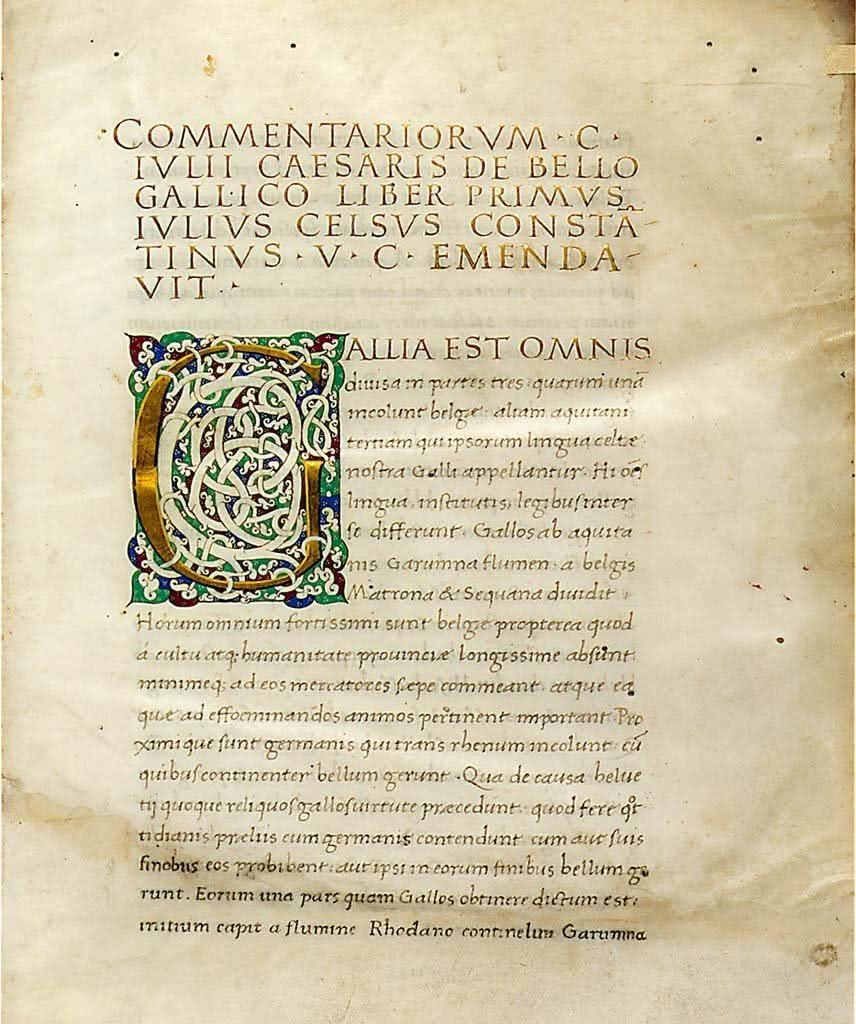 COMMENTARIORVM · C ·
IVLII CAESARIS DE BELLO
GALLICO LIBER PRIMVS
IVLIVS CELSVS CONSTĀ
TINVS · V · C · EMENDA
VIT ·
GALLIA EST OMNIS
diuisa in partes tres · quarum unā
incolunt belgę · aliam aquitani
tertiam qui ipsorum lingua celtæ
nostra Galli appellantur · Hi oēs
lingua, institutis, legibus inter
se differunt · Gallos ab aquita
nis Garumna flumen · a belgis
Matrona & Sequana diuidit ·
Horum omnium fortissimi sunt belgę propterea quod
á cultu atq; humanitate prouinciæ longissime absunt
minimeq; ad eos mercatores sæpe commeant · atque ea
quæ ad effoeminandos animos pertinent important Pro
ximique sunt germanis qui trans rhenum incolunt · cū
quibus continenter bellum gerunt · Qua de causa helue
tij quoque reliquos gallos uirtute præcedunt · quod fere
tidianis præliis cum germanis contendunt cum aut suis
finobus eos prohibent · aut ipsi in eorum finibus bellum ge
runt . Eorum una pars quam Gallos obtinere dictum est ·
initium capit a flumine Rhodano Garumna